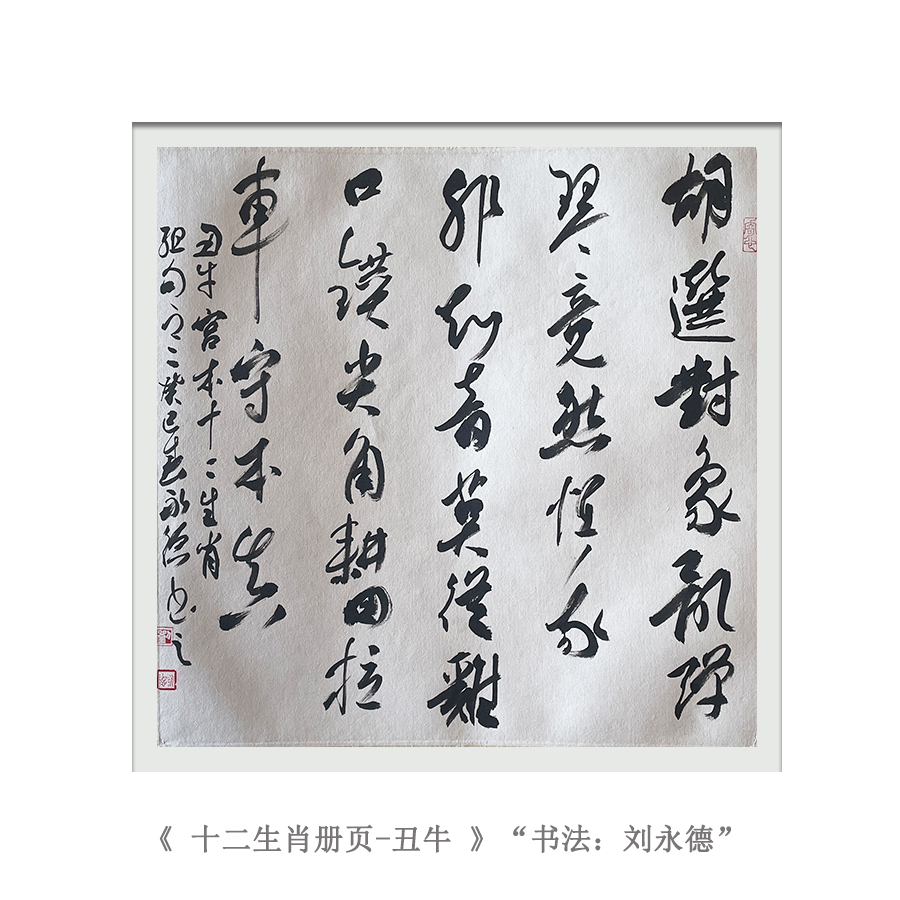 胡選對象亂彈
琴竟然怪我
非知音莫從雞
口尖角耕田拉
車守本真
丑牛宮本十二生肖
組句之二癸巳春永德书之
《 十二生肖册页-丑牛 》“书法：刘永德”